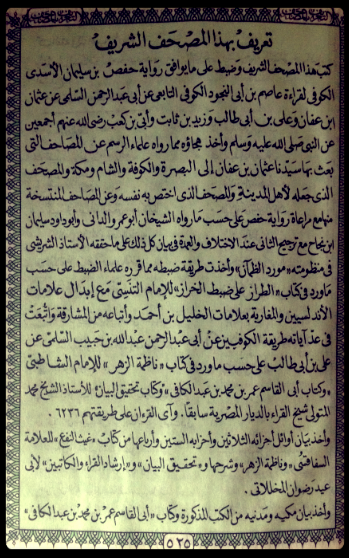 تعريف بهذا المصحف الشريف
كتب هذا المصحف الشريف وضبط على ما يوافق رواية حفص بن سليمان الأسدى
الكوفى لقراءة عاصم بن أبى النجود الكوفى التابعى عن أبى عبد الرحمن السلمى عن عثمان
ابن عفان وعلى بن أبى طالب وزيد بن ثابت وأبى بن كعب رضى الله عنهم أجمعين
عن النبى صلى الله عليه وسلم وأخذ هجاؤه مما رواه علماء الرسم عن المصاحف التى
بعث بها سيدنا عثمان بن عفان إلى البصرة والكوفة والشام ومكة والمصحف
الذى جعله لأهل المدينة والمصحف الذى اختص به نفسه وعن المصاحف المنتسخة
منها مع مراعاة رواية حفص على حسب ما رواه الشيخان أبو عمرو الدانى وأبو داود سليمان
ابن نجاح مع ترجيح الثانى عند الاختلاف والعمدة فى بيان كل ذلك على ما حققه الأستاذ الشريشى
فى منظومته «مورد الظمآن» وأخذت طريقة ضبطه مما قرره علماء الضبط على حسب
ما ورد فى كتاب «الطراز على ضبط الخراز» للإمام التنسى مع إبدال علامات
الأندلسيين والمغاربة بعلامات الخليل بن أحمد وأتباعه من المشارقة واتبعت
فى عد آياته طريقة الكوفيين عن أبى عبد الرحمن عبد الله بن حبيب السلمى عن
على بن أبى طالب على حسب ما ورد فى كتاب «ناظمة الزهر» للإمام الشاطبى
وكتاب أبى القاسم عمر بن محمد بن عبد الكافى «وكتاب تحقيق البيان» للأستاذ الشيخ محمد
المتولى شيخ القراء بالديار المصرية سابقا. وآى القرءان على طريقتهم ٦٢٣٦ .
وأخذ بيان أوائل أجزائه الثلاثين وأحزابه الستين وأرباعها من كتاب «غيث النفع» للعلامة
السفاقسى «وناظمة الزهر» وشرحها و«تحقيق البيان» و«إرشاد القراء والكاتبين» لأبى
عيد رضوان المخللاتى .
وأخذ بيان مكيه ومدنيه من الكتب المذكورة وكتاب «أبى القاسم عمر بن محمد بن عبد الكافى»
٥٢٥